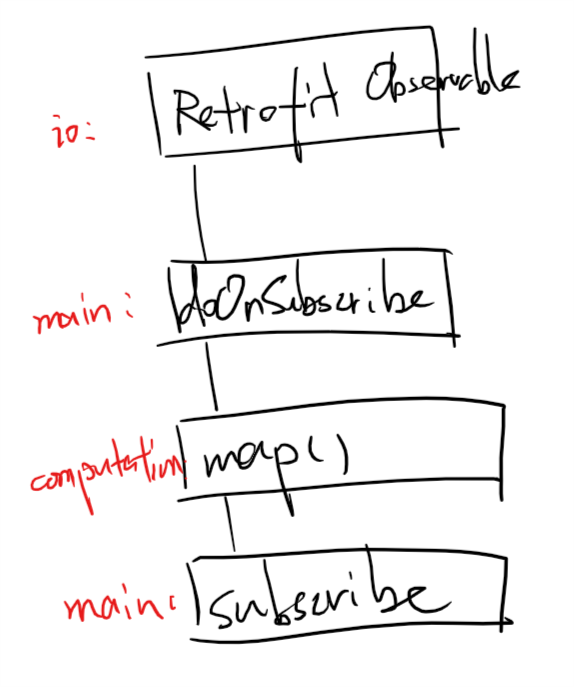 Retrofit Observable
io:
main: doOnSubscribe
computation map()
main: subscribe